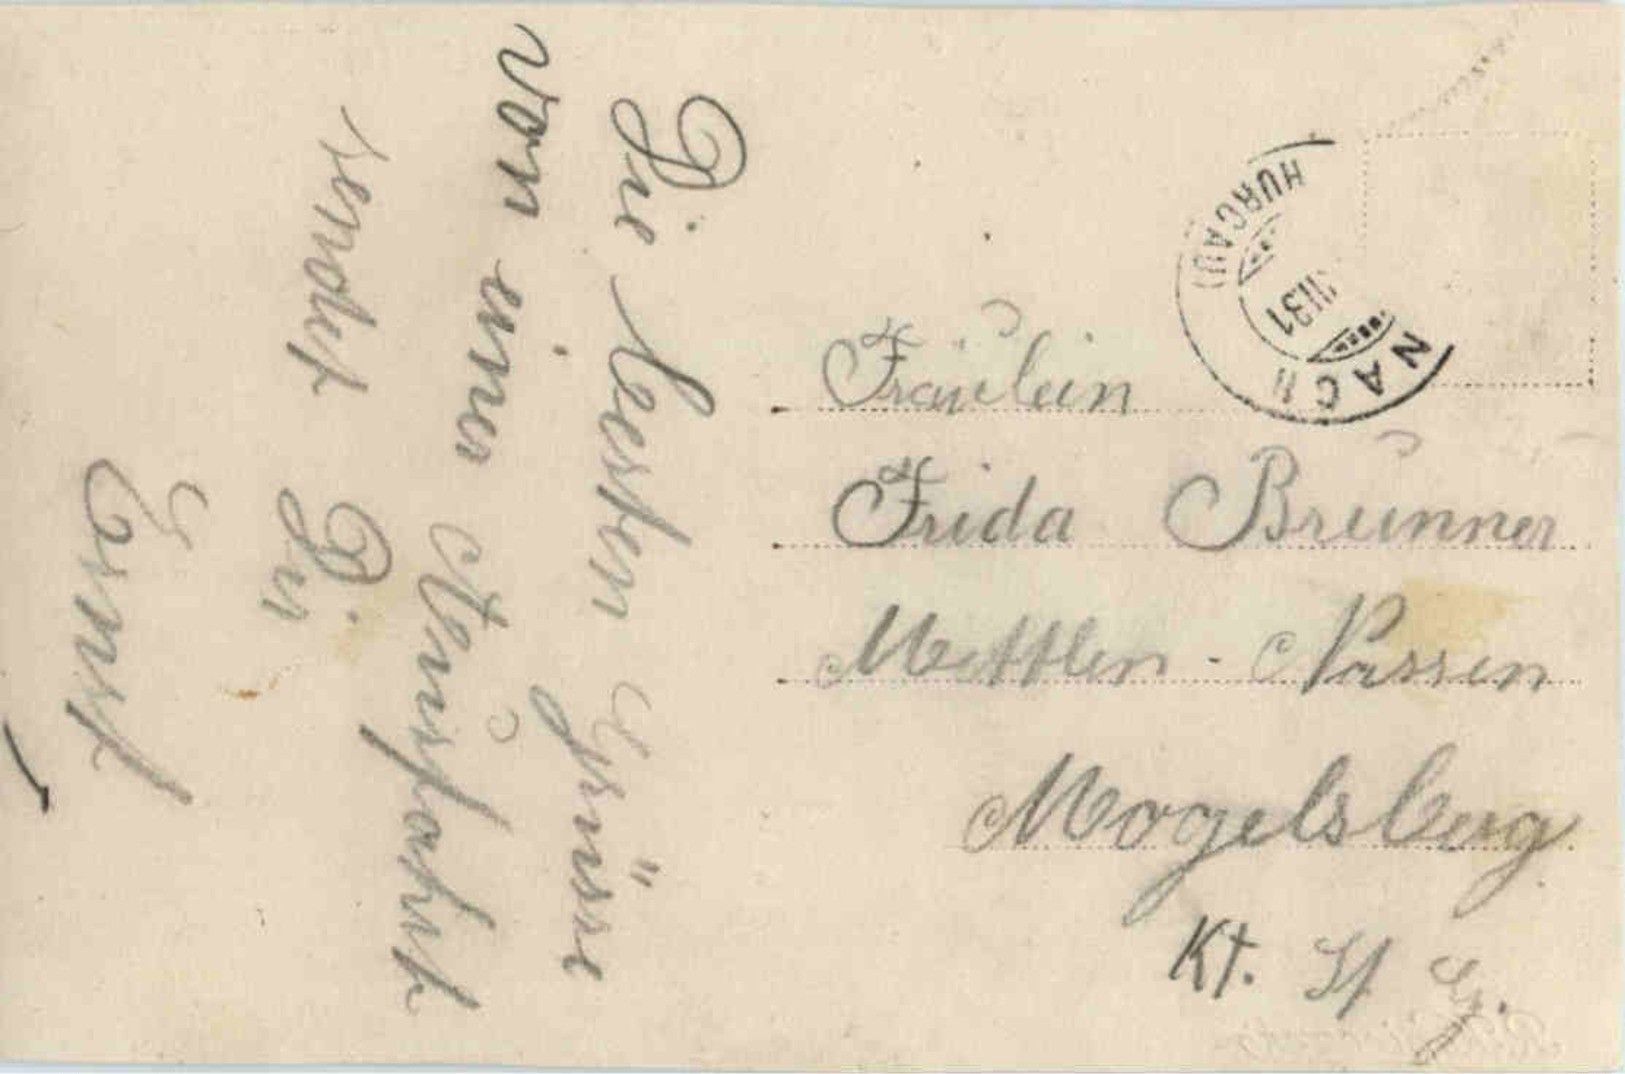 Die besten Grüsse
von einer Ausfahrt
sendet Dir
Ernst
HURGAU)
31
NACH
Fräulein
Frida Brunner
Mettlen - Nassen
Mogelsberg
Kt. St G.